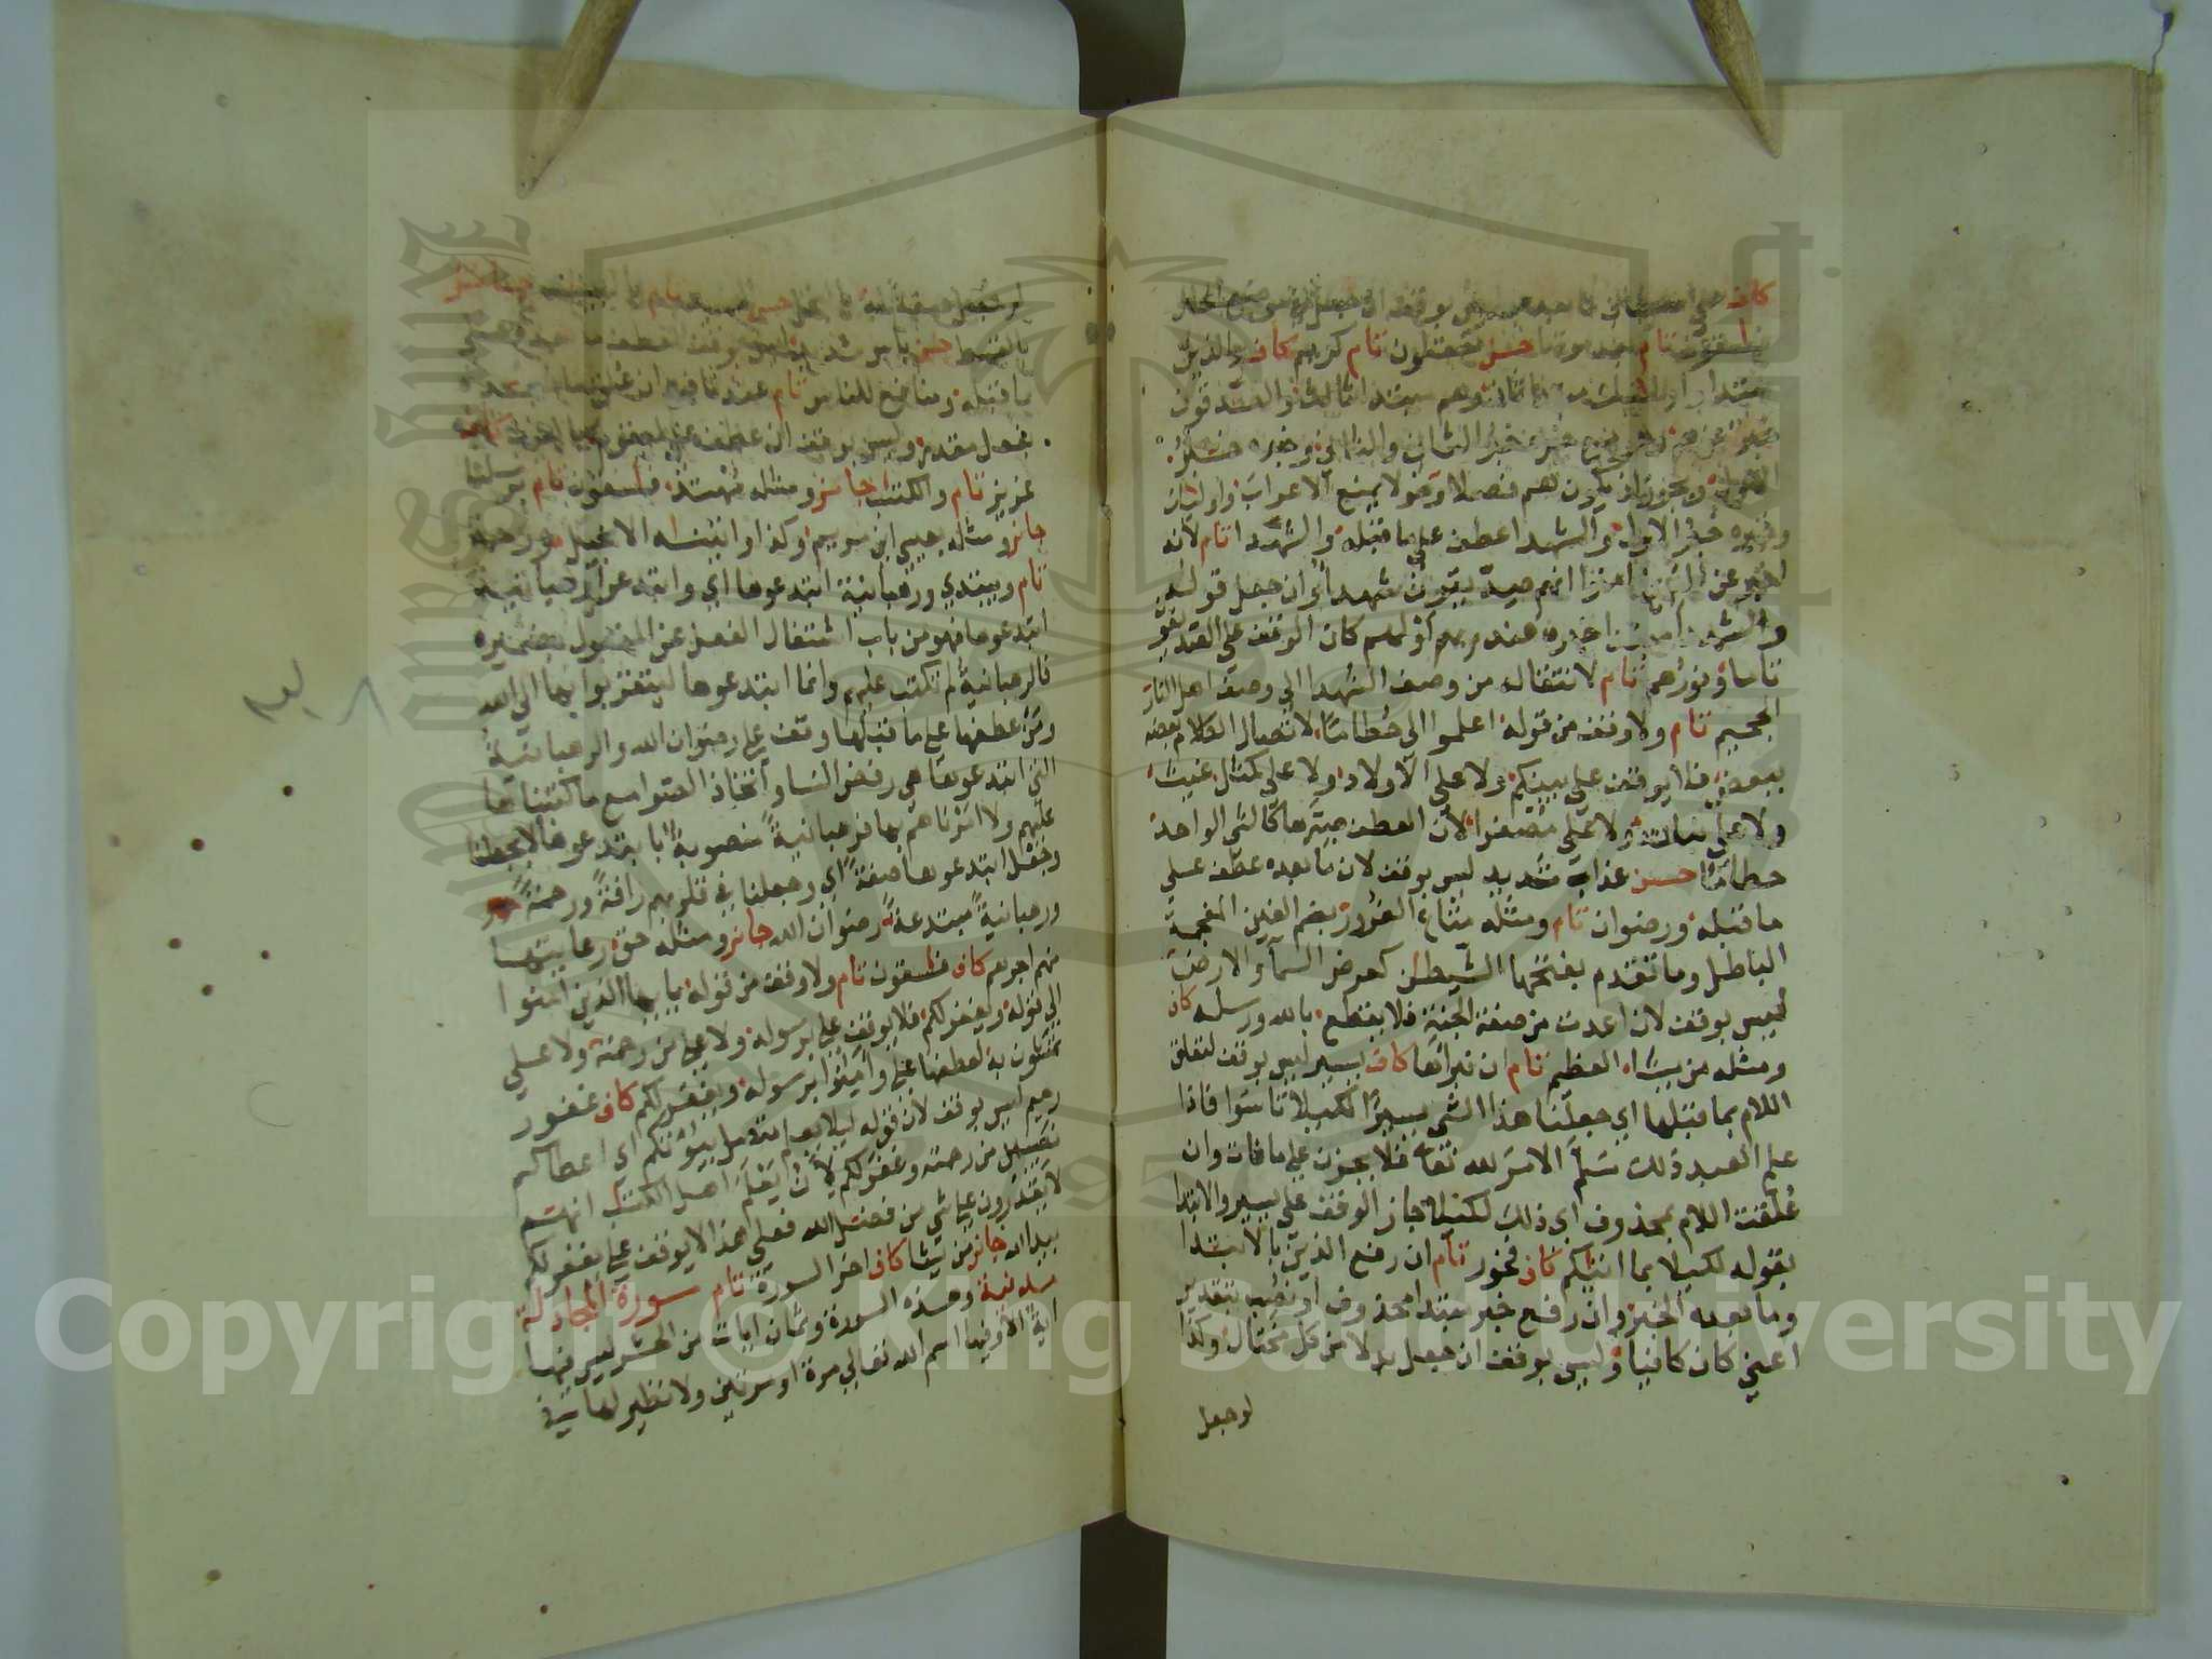 كاف
فاسقون تام حسن تعقلون تام كريم كاف والذين
مبتدا ثالث والصديقون
خبر الثاني
ويجوز ان يكون لهم فصلا لا يمنع الاعراب واولئك
وخبره خبر الاول والشهدا عطف على ما قبله والشهدا تام لانه
اخبر عن الذين امنوا انهم صديقون شهدا وان جعل قوله
والشهدا مبتدا خبره عند ربهم او لهم كان الوقف على الصديقون
تاما ونورهم تام لانتقاله من وصف الشهدا الى وصف اهل النار
الجحيم تام ولا وقف من قوله اعلموا الى حطاما لاتصال الكلام بعضه
ببعض فلا يوقف على بينكم ولا على الاولاد ولا على كمثل غيث
ولا على نباته ولا على مصفرا لان العطف صيرها كالشي الواحد
حطاما حسن عذاب شديد ليس بوقف لان ما بعده عطف على
ما قبله ورضوان تام ومثله متاع الغرور بضم الغين المعجمة
الباطل وما تقدم بفتحها الشيطن كعرض السما والارض
ليس بوقف لان اعدت من صفة الجنة فلا يقطع بالله ورسله كاف
ومثله من يشاء العظيم تام ان نبراها كاف يسير ليس بوقف لتعلق
اللام بما قبلها اي جعلنا هذا الشي يسيرا لكيلا تاسوا فاذا
علم العبد ذلك سلم الامر لله تعالى فلا يحزن على ما فات وان
علقت اللام بمحذوف اي ذلك لكيلا جاز الوقف على يسير والابتدا
بقوله لكيلا بما اتيكم كاف فخور تام ان رفع الذين بالابتدا
وما بعده الخبر وان رفع خبر مبتدا محذوف او نصب بتقدير
اعني كان كافيا وليس بوقف ان جعل بدلا من كل مختال وكذا
لو جعل
لو جعل صفة له بالبخل حسن
بالقسط حسن باس شديد ليس بوقف لعطف ما بعده على
ما قبله ومنافع للناس تام عند نافع ان
بفعل مقدر وليس بوقف ان عطف على ليقوم
عزيز تام والكتب جائز ومثله مهتد فاسقون تام برسلنا
جائز ومثله بعيسى ابن مريم وكذا واتينه الانجيل ورحمة
تام ويبتدي ورهبانية ابتدعوها اي وابتدعوا رهبانية
ابتدعوها فهو من باب اشتغال الفعل عن المفعول بضميره
فالرهبانية لم تكتب عليهم وانما ابتدعوها ليتقربوا بها الى الله
ومن عطفها على ما قبلها وقف على رضوان الله والرهبانية
التي ابتدعوها هي رفض النسا واتخاذ الصوامع ما كتبناها
عليهم ولا امرناهم بها فرهبانية منصوبة بابتدعوها لا بجعلنا
وجعل ابتدعوها صفة اي وجعلنا في قلوبهم رافة ورحمة
ورهبانية مبتدعة رضوان الله جائز ومثله حق رعايتها
منهم اجرهم كاف فاسقون تام ولا وقف من قوله يايها الذين امنوا
الى قوله ويغفر لكم فلا يوقف على برسوله ولا على من رحمته ولا على
تمشون به لعطفها على وامنوا برسوله ويغفر لكم كاف غفور
رحيم ليس بوقف لان قوله ليلا يعلم متصل بيؤتكم اي اعطاكم
نصيبين من رحمته وغفر لكم لان يعلم اهل الكتب انهم
لا يقدرون على شي من فضل الله فعلى هذا لا يوقف على يغفر لكم
بيد الله جائز من يشا كاف اخر السورة تام سورة المجادلة
مدنية وهذه السورة وثمان ايات من الحشر ليس فيها
اية الا وفيها اسم الله تعالى مرة او مرتين ولا نظير لها
Copyright © King Saud University
King Saud University
1957